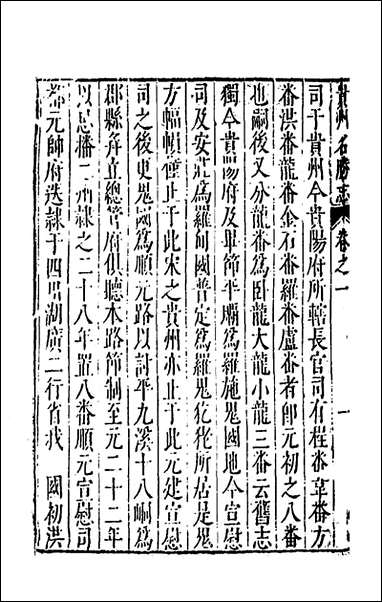 貴州名勝志 卷之一 一
司于貴州今貴陽府所轄長官司有程番韋番方
番洪番龍番金石番羅番盧番者卽元初之八番
也嗣後又分龍番爲卧龍大龍小龍三番云舊志
獨今貴陽府及畢節平壩爲羅施鬼國地今宣慰
司及安莊爲羅甸國普定爲羅鬼犵狫所居是鬼
方幅幀僅止于此宋之貴州亦止于此元建宣慰
司之後更鬼國爲順元路以討平九溪十八峒爲
郡縣弁立總管府俱聽本路節制至元二十二年
以思播二州隸之二十八年置八番順元宣慰司
都元帥府迭隸于四川湖廣二行省我 國初洪